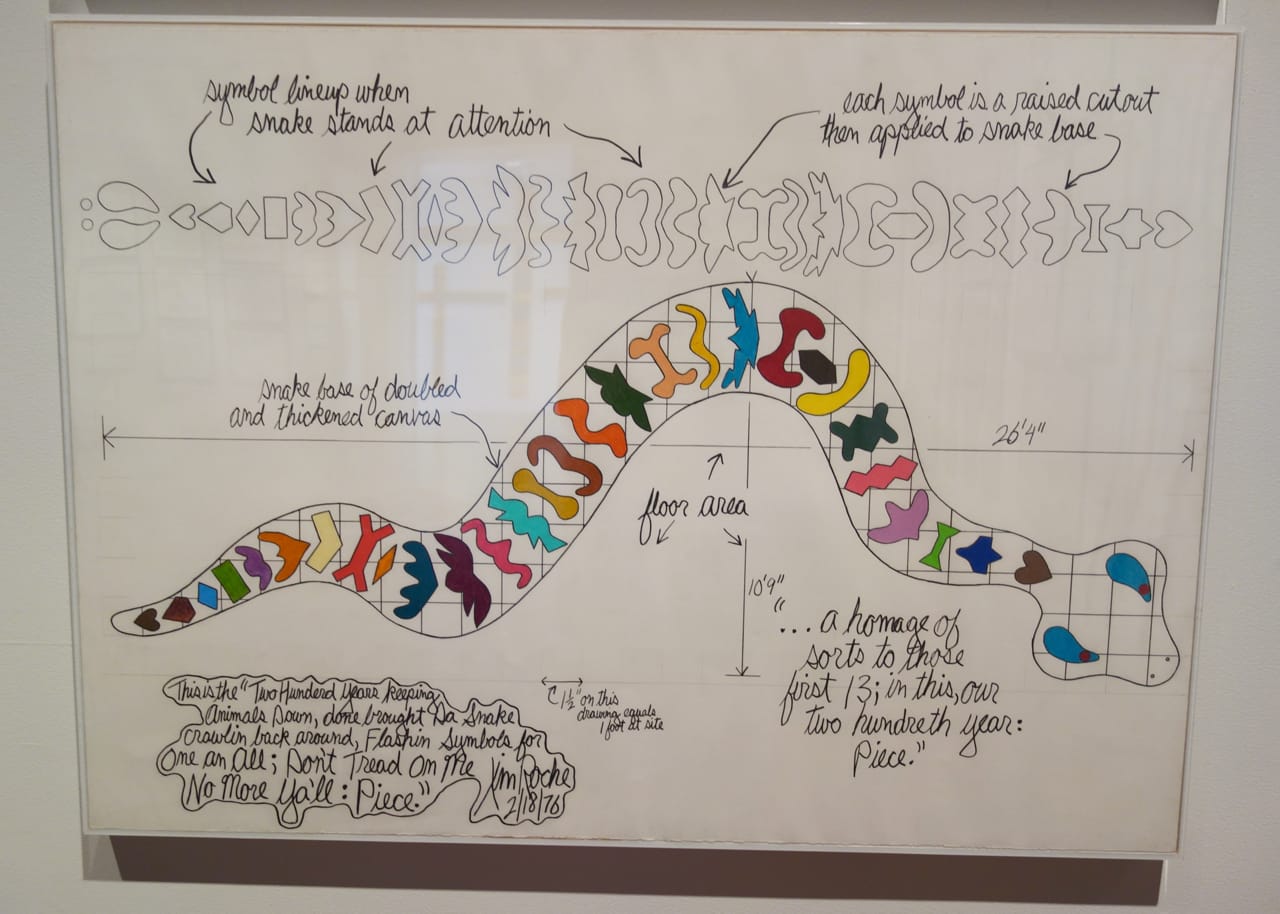 symbol lineup when
snake stands at attention
each symbol is a raised cutout
then applied to snake base
snake base of doubled
and thickened canvas
26'4"
floor area
10'9"
"...a homage of
sorts to those
first 13; in this, our
two hundreth year:
Piece."
1½" on this
drawing equals
1 foot at site
This is the "Two Hunderd Years keeping
Animals Down, done brought Da Snake
Crawlin back around, Flashin Symbols for
One an All; Don't Tread On Me
No More Ya'll: Piece."
Jim Roche
2/18/76